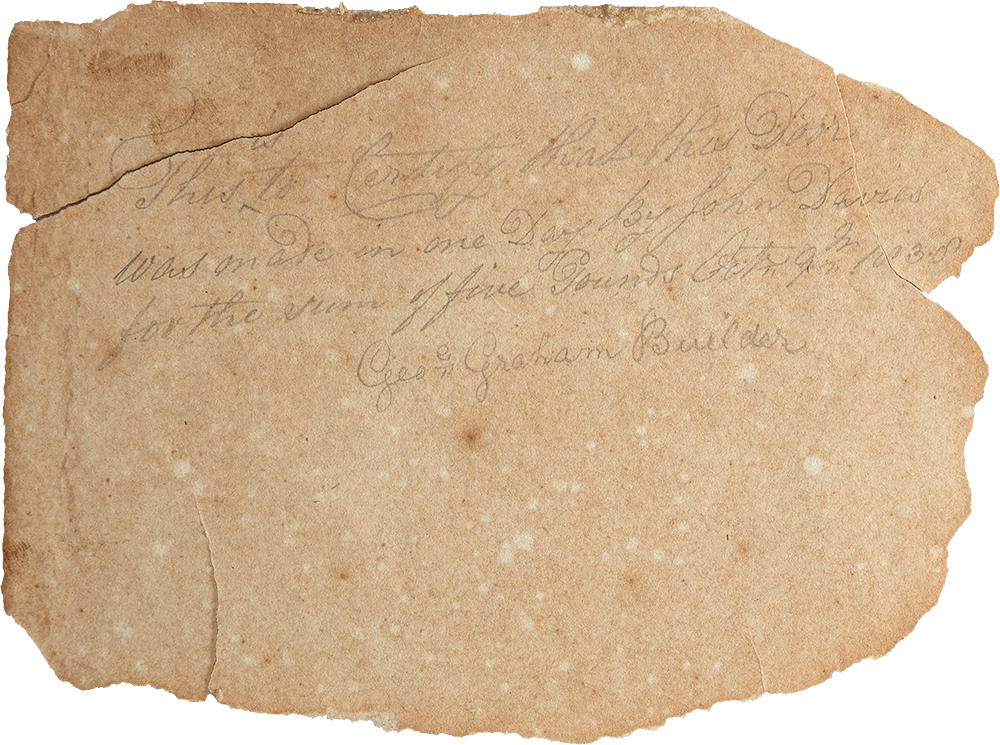 This ^is to Certify that this Door
was made in one Day By John Davies
for the sum of five Pounds Octr 9th 1838
Geoe Graham Builder